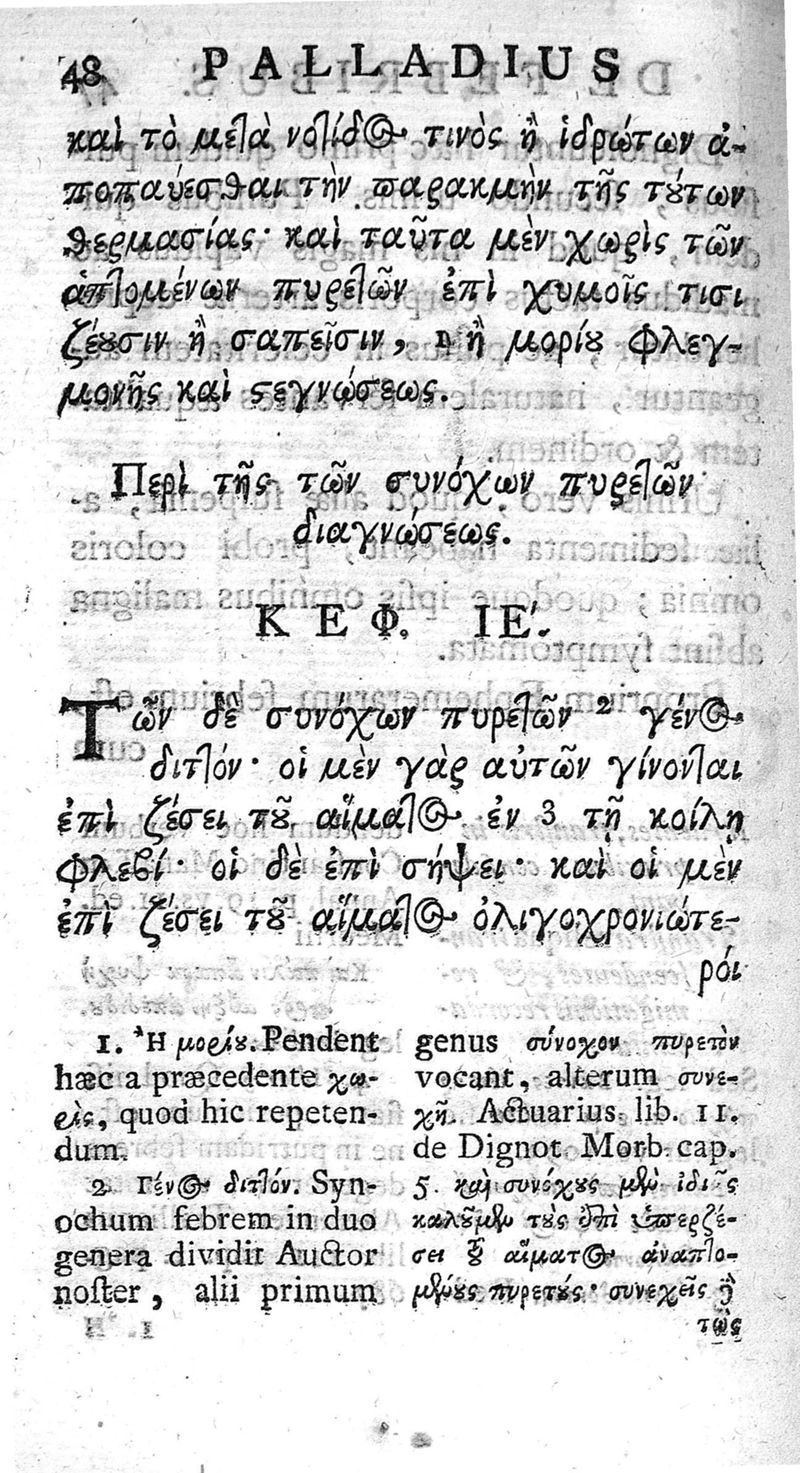 48 PALLADIUS
καὶ τὸ μετὰ νοτίδος τινὸς ἢ ἱδρώτων ἀ-
ποπαύεσθαι τὴν παρακμὴν τῆς τούτων
θερμασίας· καὶ ταῦτα μὲν χωρὶς τῶν
ἁπτομένων πυρετῶν ἐπὶ χυμοῖς τισι
ζέουσιν ἢ σαπεῖσιν, 1 ἢ μορίου φλεγ-
μονῆς καὶ στεγνώσεως.
Περὶ τῆς τῶν συνόχων πυρετῶν
διαγνώσεως.
ΚΕΦ. ΙΕ΄.
Τῶν δὲ συνόχων πυρετῶν 2 γένος
διττόν· οἱ μὲν γὰρ αὐτῶν γίνονται
ἐπὶ ζέσει τοῦ αἵματος ἐν 3 τῇ κοίλῃ
φλεβί· οἱ δὲ ἐπὶ σήψει· καὶ οἱ μὲν
ἐπὶ ζέσει τοῦ αἵματος ὀλιγοχρονιώτε-
ροι
1. Ἢ μορίου. Pendent
hæc a præcedente χω-
ρὶς, quod hic repeten-
dum.
2. Γένος διττόν. Syn-
ochum febrem in duo
genera dividit Auctor
noster, alii primum
genus σύνοχον πυρετὸν
vocant, alterum συνε-
χῆ. Actuarius lib. 11.
de Dignot. Morb. cap.
5. καὶ συνόχους μὲν ἰδίως
καλοῦμεν τοὺς ἐπὶ ὑπερζέ-
σει τοῦ αἵματος ἀναπτο-
μένους πυρετούς· συνεχεῖς δὲ
τοὺς